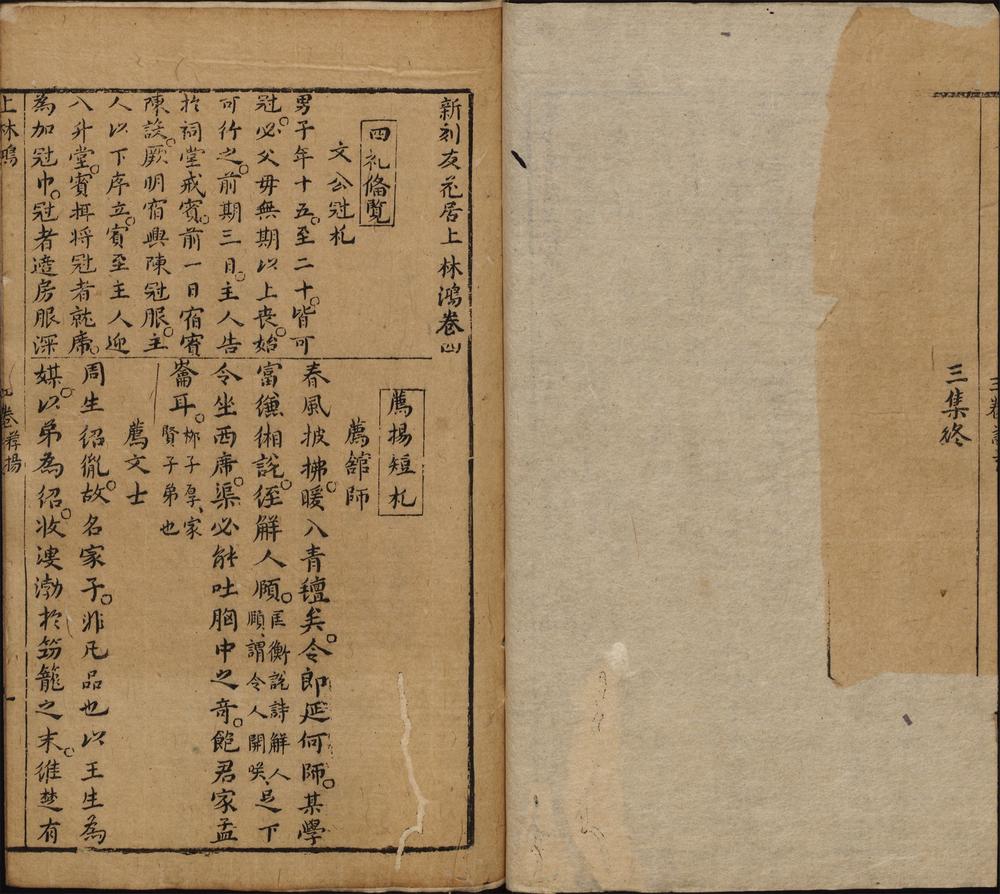 三卷
三集终
新刻友花居上林鴻卷四
四礼偹覧
文公冠礼
男子年十五至二十皆可
冠必父母無期以上丧始
可行之前期三日主人告
扵祠堂戒賓前一日宿賓
陳設厥明宿興陳冠服主
人以下序立賓至主人迎
入升堂賓揖将冠者就席
為加冠巾冠者適房服深
薦揚短札
薦舘師
春風披拂暖入青氊矣令郎延何師某學
富縑緗説经解人頤匡衡説詩解人
頤謂令人開咲足下
令坐西席渠必能吐胸中之奇飽君家孟
崙耳栁子厚家
賢子弟也
薦文士
周生绍胤故名家子非凡品也以王生為
媒以弟為绍收溲渤扵笏籠之末維楚有
上林鴻
四卷薦揚
一